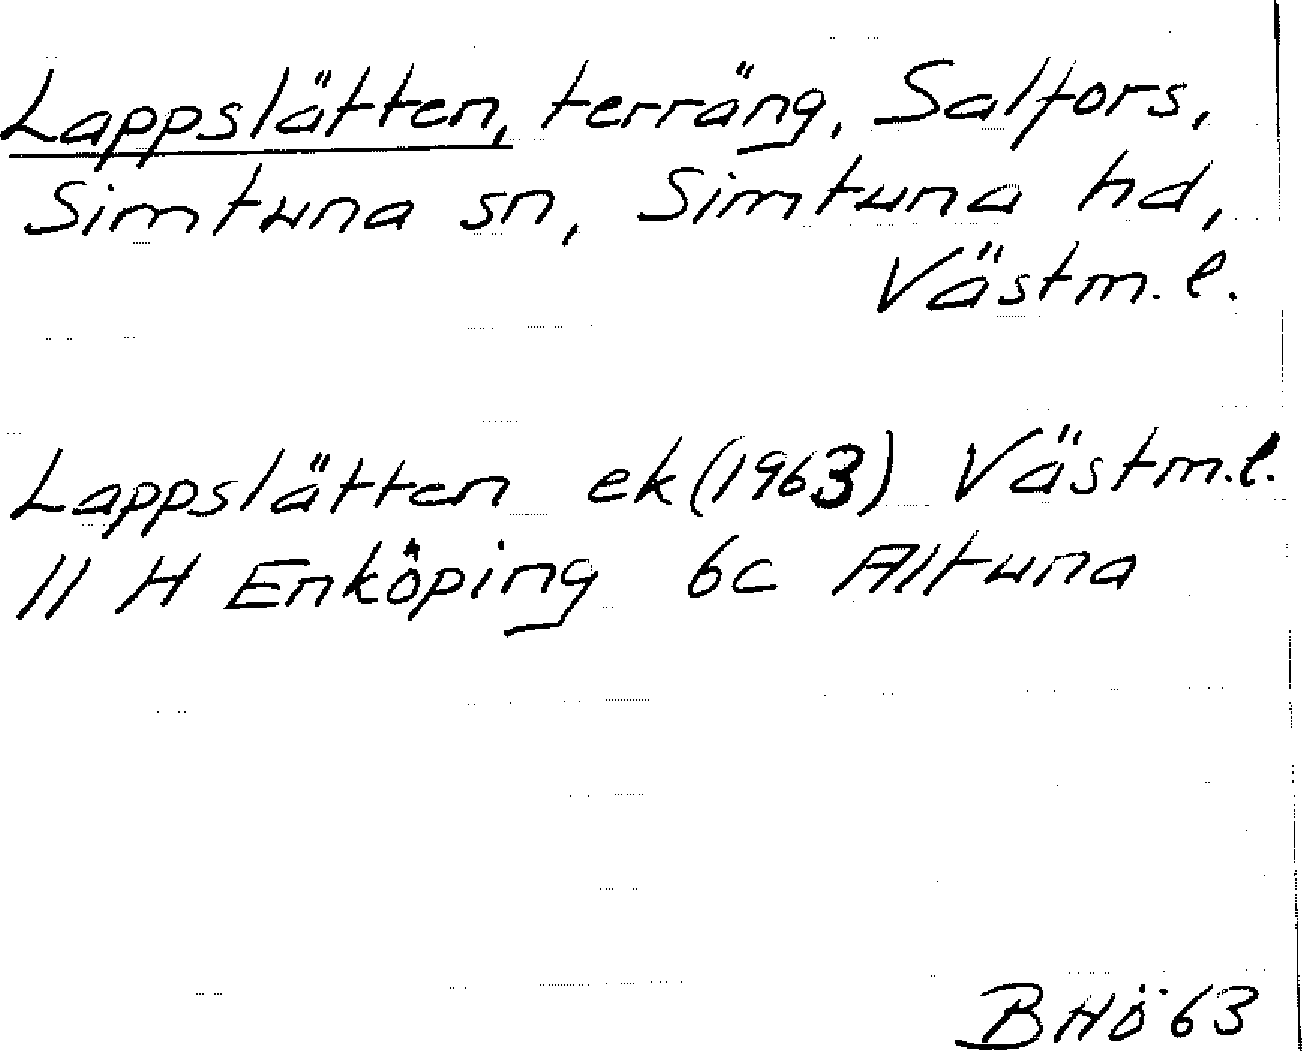 Lappslätten, terräng, Salfors,
Simtuna sn, Simtuna hd,
Västm. l.
Lappslätten ek (1963) Västm.l.
11 H Enköping 6c Altuna
BHö 63